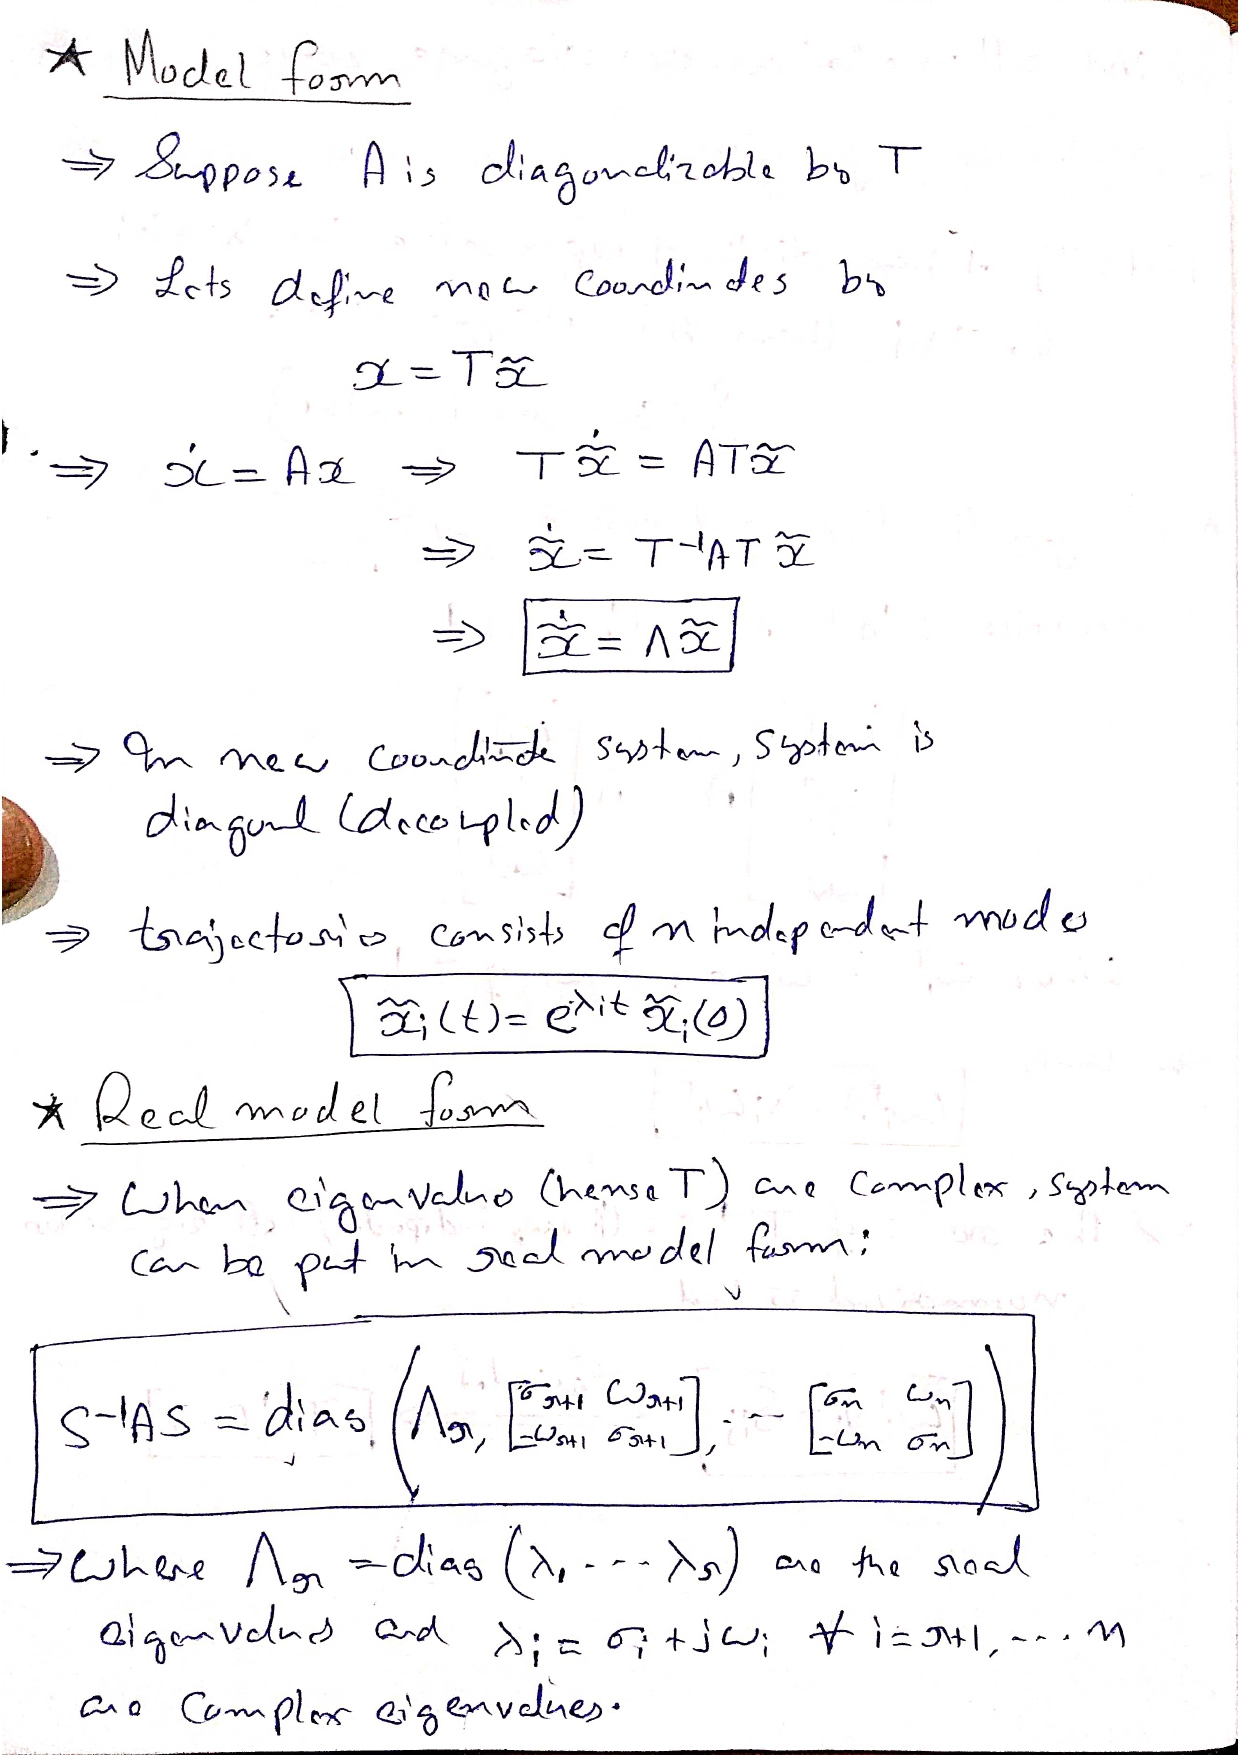 ★ Model form
⇒ Suppose A is diagonalizable by T
⇒ Lets define new coordinates by
x = Tx̃
⇒ ẋ = Ax ⇒ T x̃̇ = ATx̃
⇒ x̃̇ = T⁻¹AT x̃
⇒ x̃̇ = Λx̃
⇒ In new coordinate system, system is
diagonal (decoupled)
⇒ trajectories consists of n independent modes
x̃ᵢ(t) = e^{λᵢt} x̃ᵢ(0)
★ Real model form
⇒ When eigenvalues (hense T) are complex, system
can be put in real model form:
S⁻¹AS = diag (Λᵣ, [σᵣ₊₁ ωᵣ₊₁; -ωᵣ₊₁ σᵣ₊₁], --- [σₙ ωₙ; -ωₙ σₙ])
⇒ Where Λᵣ = diag (λ₁ --- λᵣ) are the real
eigenvalues and λᵢ = σᵢ + jωᵢ ∀ i = r+1, --- n
are complex eigenvalues.